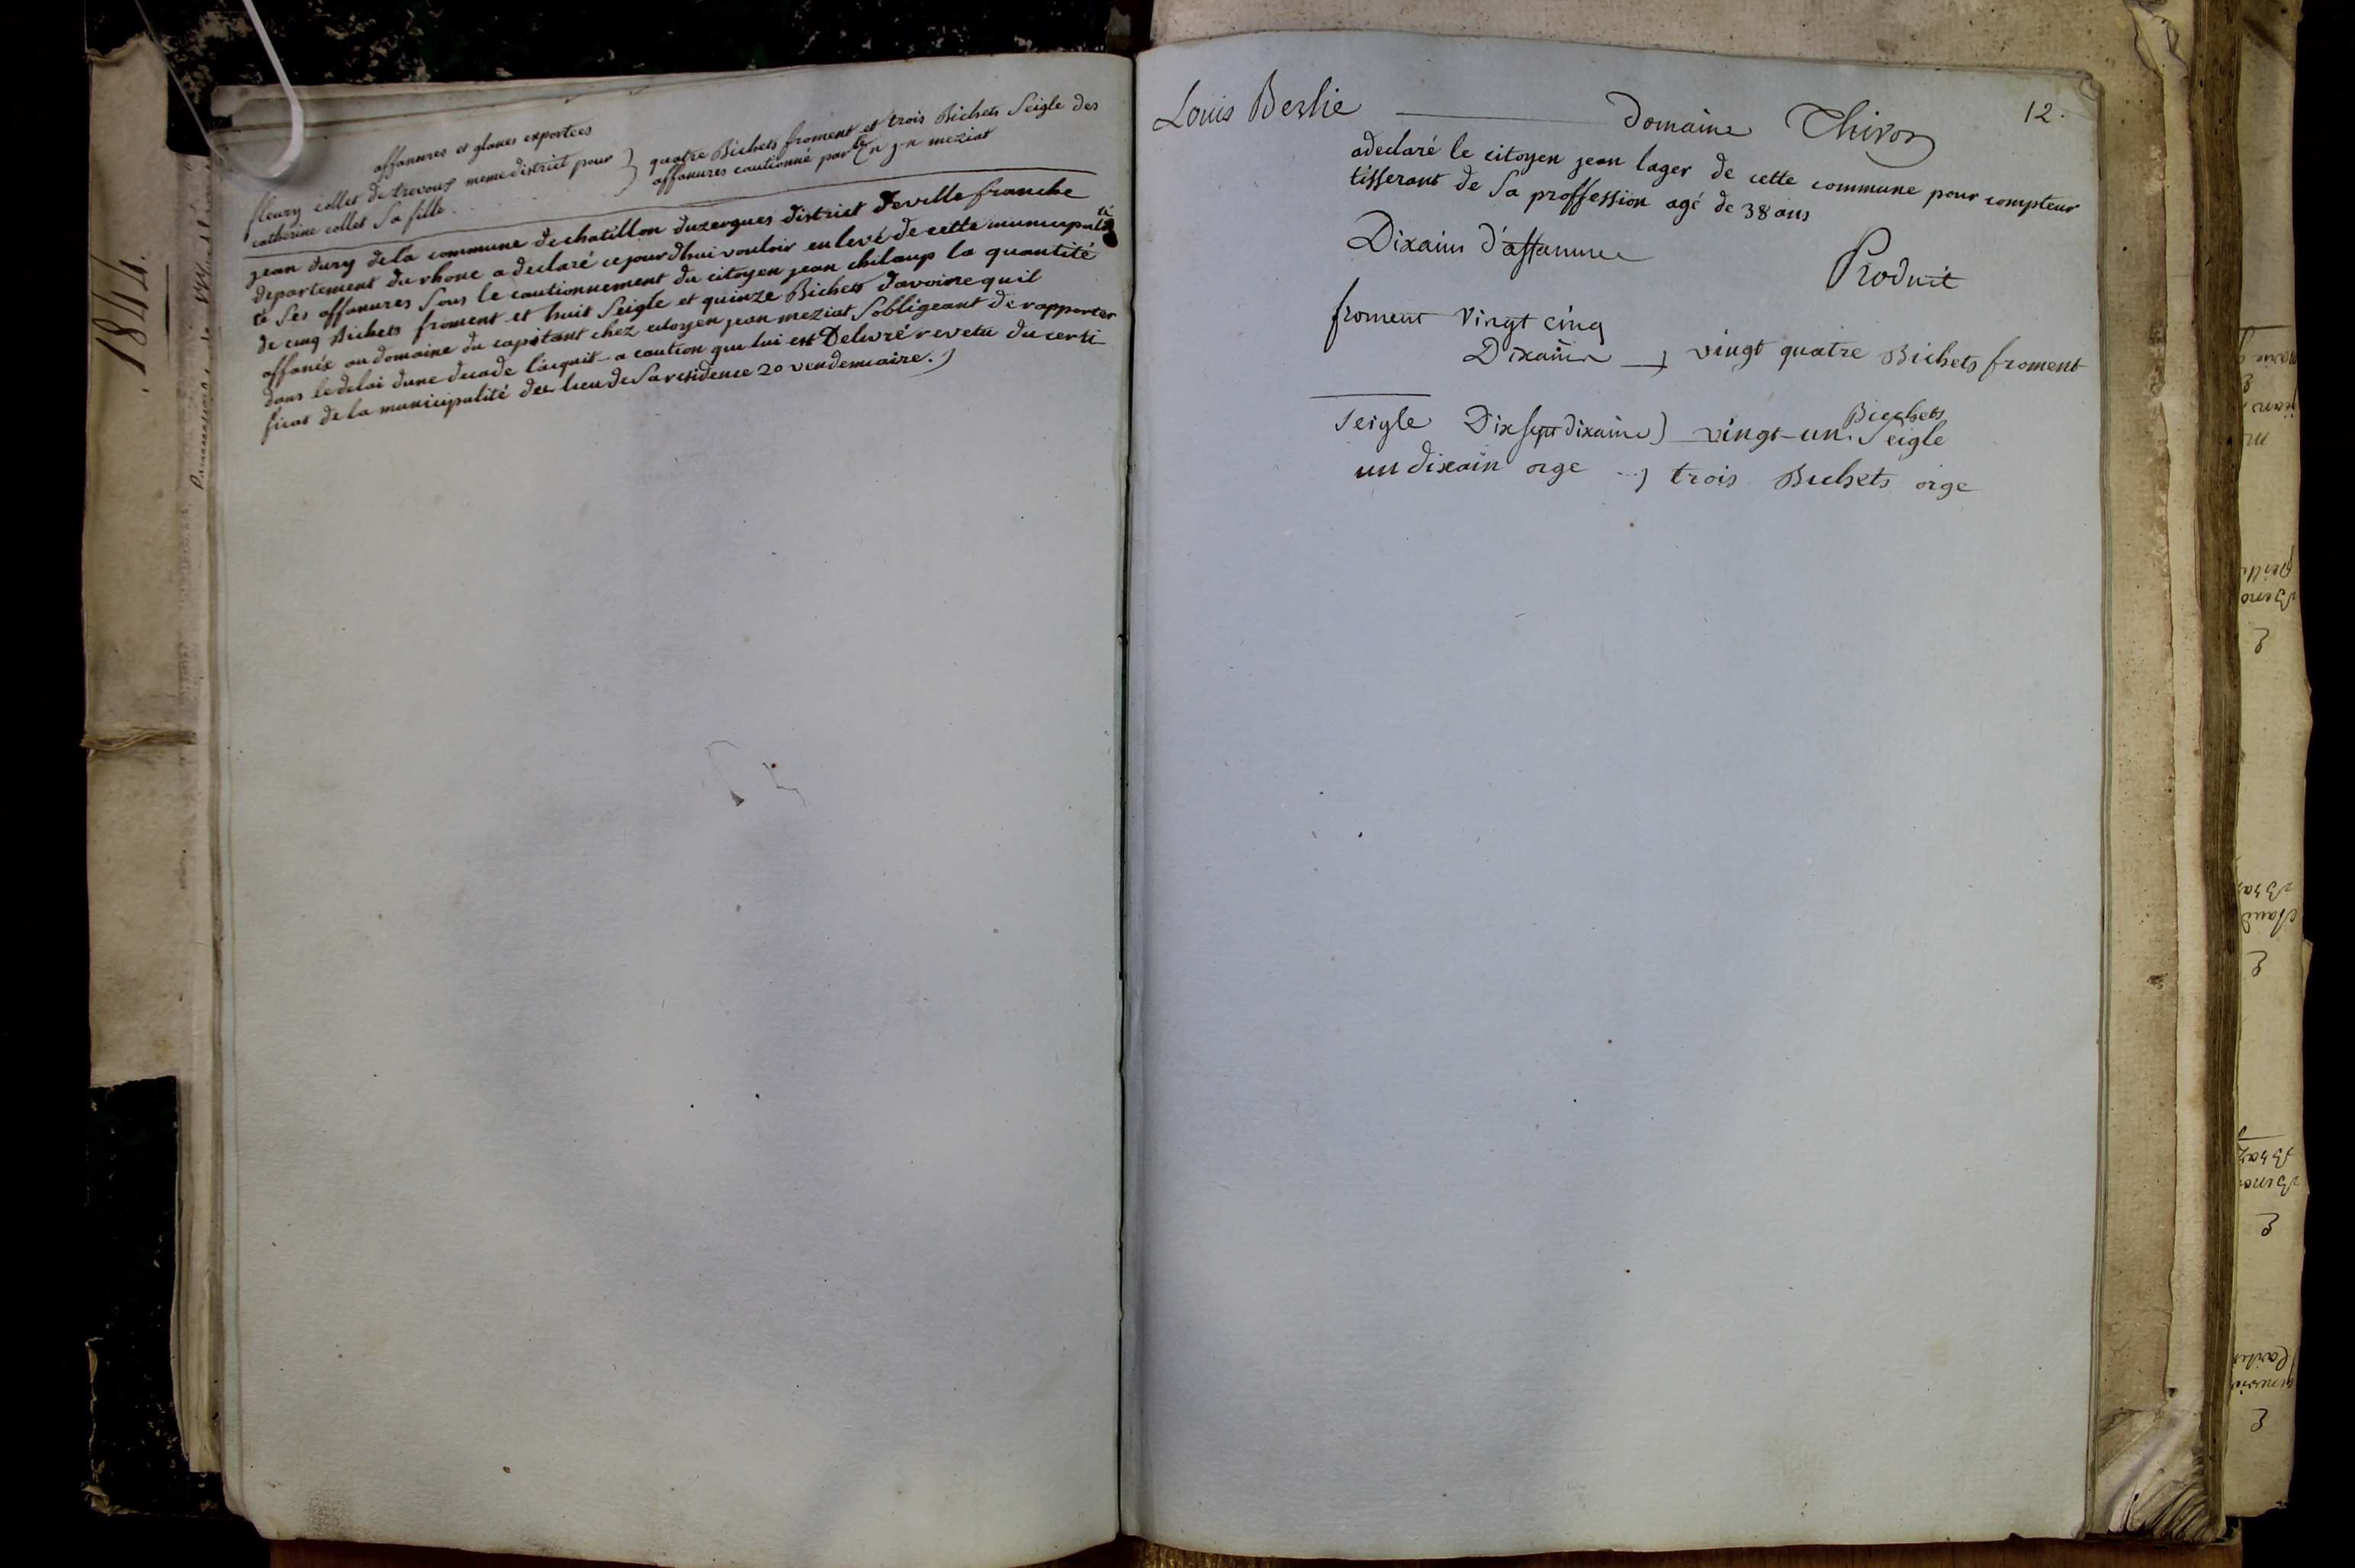 affanures et glanes exportées
fleury collet de trevoux meme district pour } quatre Bichets froment et trois Bichets Seigle des
catherine collet Sa fille . affanures cautionné par le Cn j-n meziat
jean dury de la commune de chatillon duzergues district de ville franche
departement du rhone a declaré ce jourdhui vouloir enlevé de cette municipali té
te Ses affanures Sous le cautionnement du citoyen jean chilaup la quantité
de cinq Bichets froment et huit Seigle et quinze Bichets davoine quil
affanéx au domaine du capitant chéz citoyen jean meziat Sobligeant de rapporter
dans le delai dune decade lacquit-a caution qui lui est Delivré revetu du certi-
ficat de la municipalité des lieu de Sa residence 20 vendemiaire.)
1844.
Louis Berlie Domaine Thivon 12.
adeclaré le citoyen jean lager de cette commune pour compteur
tisserant de Sa proffession agé de 38 ans
Dixains d'affanure
Produit
froment Vingt cinq
Dixains vingt quatre Bichets froment
Seigle Dix Sept dixains) vingt-un. Bichets Seigle
un dixain orge ...) trois Bichets orge